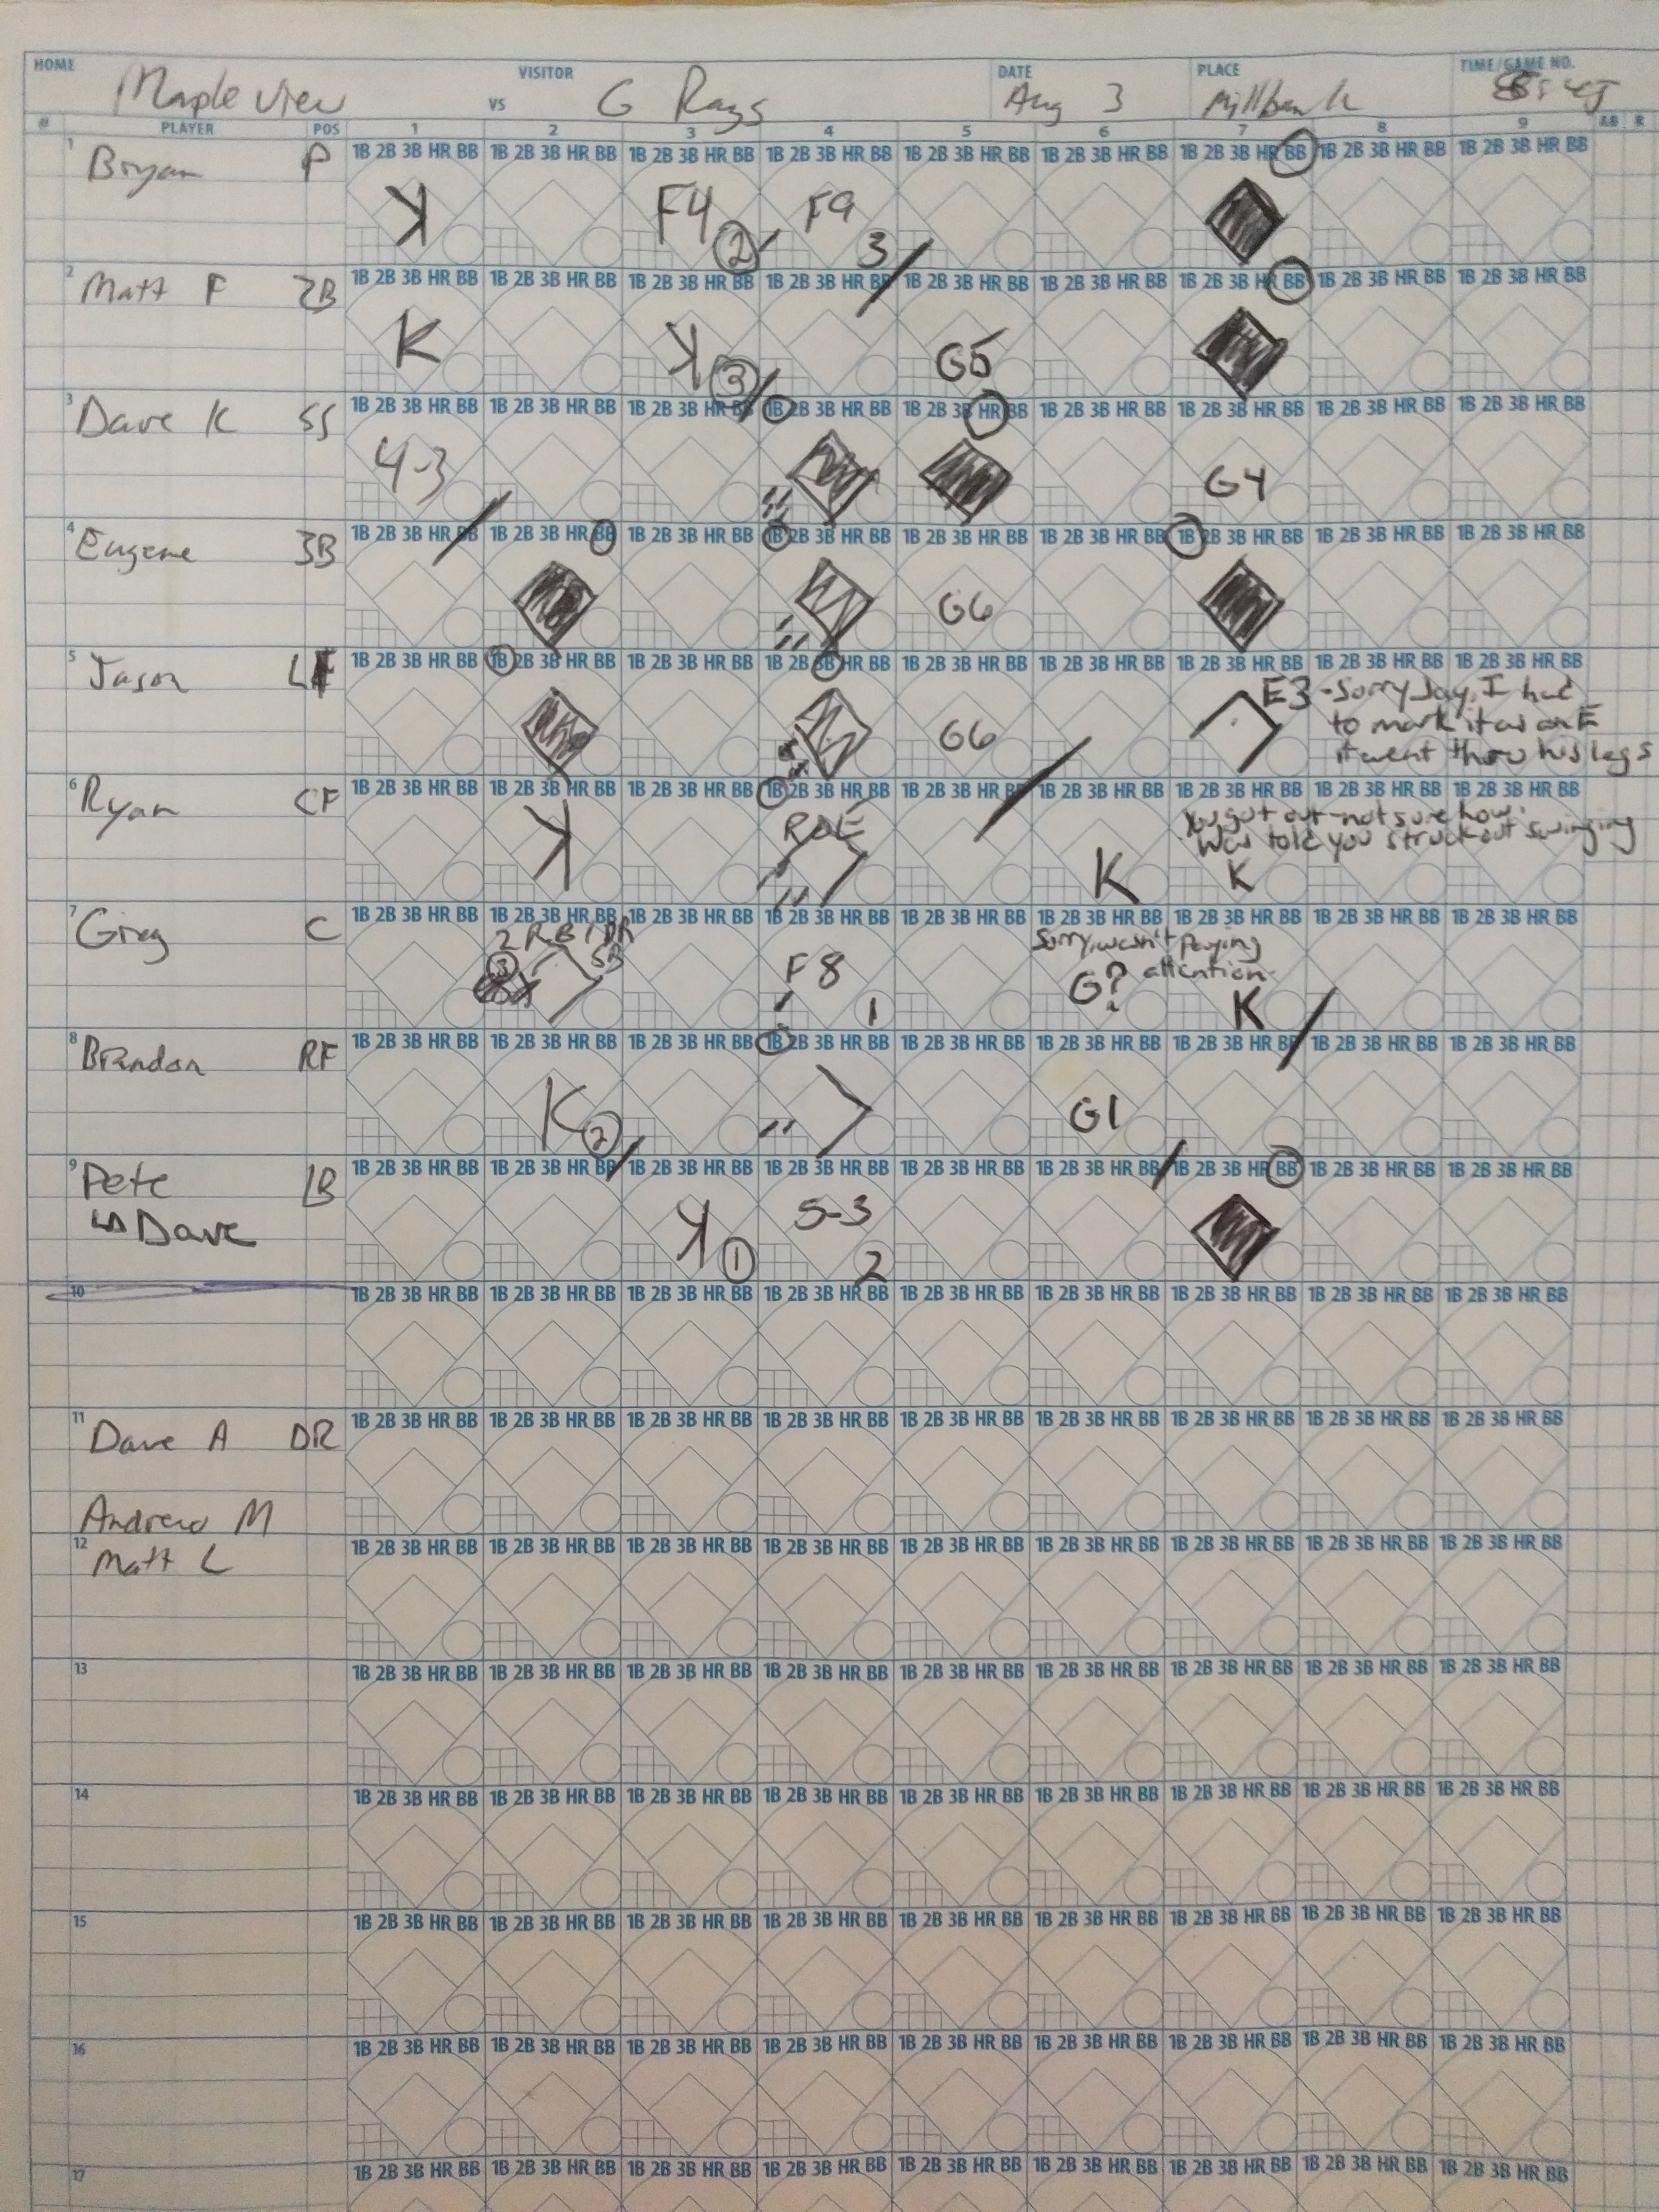 HOME Maple view VISITOR VS G Rays DATE Aug 3 PLACE Millbank TIME/GAME NO.
# PLAYER POS 1 2 3 4 5 6 7 8 9 AB R
1 1B 2B 3B HR BB 1B 2B 3B HR BB 1B 2B 3B HR BB 1B 2B 3B HR BB 1B 2B 3B HR BB 1B 2B 3B HR BB 1B 2B 3B HR BB 1B 2B 3B HR BB 1B 2B 3B HR BB
Bryan P K F4 2 F9 3
2 1B 2B 3B HR BB 1B 2B 3B HR BB 1B 2B 3B HR BB 1B 2B 3B HR BB 1B 2B 3B HR BB 1B 2B 3B HR BB 1B 2B 3B HR BB 1B 2B 3B HR BB 1B 2B 3B HR BB
Matt F 2B K K 3 G5
3 1B 2B 3B HR BB 1B 2B 3B HR BB 1B 2B 3B HR BB 1B 2B 3B HR BB 1B 2B 3B HR BB 1B 2B 3B HR BB 1B 2B 3B HR BB 1B 2B 3B HR BB 1B 2B 3B HR BB
Dave K SS 4-3 G4
4 1B 2B 3B HR BB 1B 2B 3B HR BB 1B 2B 3B HR BB 1B 2B 3B HR BB 1B 2B 3B HR BB 1B 2B 3B HR BB 1B 2B 3B HR BB 1B 2B 3B HR BB 1B 2B 3B HR BB
Eugene 3B G6
5 1B 2B 3B HR BB 1B 2B 3B HR BB 1B 2B 3B HR BB 1B 2B 3B HR BB 1B 2B 3B HR BB 1B 2B 3B HR BB 1B 2B 3B HR BB 1B 2B 3B HR BB 1B 2B 3B HR BB
Jason LF G6 E3 - Sorry Jay, I had
to mark it as an E
it went throu his legs
6 1B 2B 3B HR BB 1B 2B 3B HR BB 1B 2B 3B HR BB 1B 2B 3B HR BB 1B 2B 3B HR BB 1B 2B 3B HR BB 1B 2B 3B HR BB 1B 2B 3B HR BB 1B 2B 3B HR BB
Ryan CF K ROE K You got out - not sure how.
Was told you struck out swinging
K
7 1B 2B 3B HR BB 1B 2B 3B HR BB 1B 2B 3B HR BB 1B 2B 3B HR BB 1B 2B 3B HR BB 1B 2B 3B HR BB 1B 2B 3B HR BB 1B 2B 3B HR BB 1B 2B 3B HR BB
Greg C 2 RBI DR Sorry, wasn't paying
SB 3 F8 1 G? attention K
8 1B 2B 3B HR BB 1B 2B 3B HR BB 1B 2B 3B HR BB 1B 2B 3B HR BB 1B 2B 3B HR BB 1B 2B 3B HR BB 1B 2B 3B HR BB 1B 2B 3B HR BB 1B 2B 3B HR BB
Brandon RF K 2 G1
9 1B 2B 3B HR BB 1B 2B 3B HR BB 1B 2B 3B HR BB 1B 2B 3B HR BB 1B 2B 3B HR BB 1B 2B 3B HR BB 1B 2B 3B HR BB 1B 2B 3B HR BB 1B 2B 3B HR BB
Pete 1B K 1 5-3 2
Dave
10 1B 2B 3B HR BB 1B 2B 3B HR BB 1B 2B 3B HR BB 1B 2B 3B HR BB 1B 2B 3B HR BB 1B 2B 3B HR BB 1B 2B 3B HR BB 1B 2B 3B HR BB 1B 2B 3B HR BB
11 1B 2B 3B HR BB 1B 2B 3B HR BB 1B 2B 3B HR BB 1B 2B 3B HR BB 1B 2B 3B HR BB 1B 2B 3B HR BB 1B 2B 3B HR BB 1B 2B 3B HR BB 1B 2B 3B HR BB
Dave A DR
Andrew M
12 1B 2B 3B HR BB 1B 2B 3B HR BB 1B 2B 3B HR BB 1B 2B 3B HR BB 1B 2B 3B HR BB 1B 2B 3B HR BB 1B 2B 3B HR BB 1B 2B 3B HR BB 1B 2B 3B HR BB
Matt L
13 1B 2B 3B HR BB 1B 2B 3B HR BB 1B 2B 3B HR BB 1B 2B 3B HR BB 1B 2B 3B HR BB 1B 2B 3B HR BB 1B 2B 3B HR BB 1B 2B 3B HR BB 1B 2B 3B HR BB
14 1B 2B 3B HR BB 1B 2B 3B HR BB 1B 2B 3B HR BB 1B 2B 3B HR BB 1B 2B 3B HR BB 1B 2B 3B HR BB 1B 2B 3B HR BB 1B 2B 3B HR BB 1B 2B 3B HR BB
15 1B 2B 3B HR BB 1B 2B 3B HR BB 1B 2B 3B HR BB 1B 2B 3B HR BB 1B 2B 3B HR BB 1B 2B 3B HR BB 1B 2B 3B HR BB 1B 2B 3B HR BB 1B 2B 3B HR BB
16 1B 2B 3B HR BB 1B 2B 3B HR BB 1B 2B 3B HR BB 1B 2B 3B HR BB 1B 2B 3B HR BB 1B 2B 3B HR BB 1B 2B 3B HR BB 1B 2B 3B HR BB 1B 2B 3B HR BB
17 1B 2B 3B HR BB 1B 2B 3B HR BB 1B 2B 3B HR BB 1B 2B 3B HR BB 1B 2B 3B HR BB 1B 2B 3B HR BB 1B 2B 3B HR BB 1B 2B 3B HR BB 1B 2B 3B HR BB